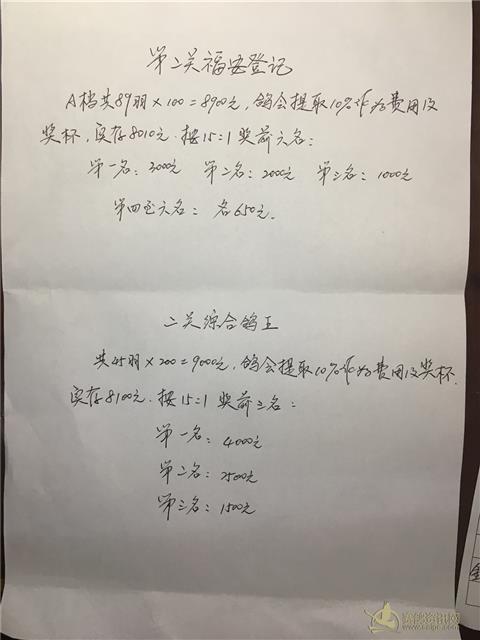 第二关福安登记
A档共89羽×100=8900元，鸽会提取10%作为费用及
奖杯，实存8010元.按15=1奖前六名：
第一名：3000元 第二名：2000元 第三名：1000元
第四至六名：各650元.
二关综合鸽王
共45羽×200=9000元，鸽会提取10%作为费用及奖杯.
实存8100元.按15=1奖前三名：
第一名：4000元
第二名：2500元
第三名：1500元
赛鸽资讯网